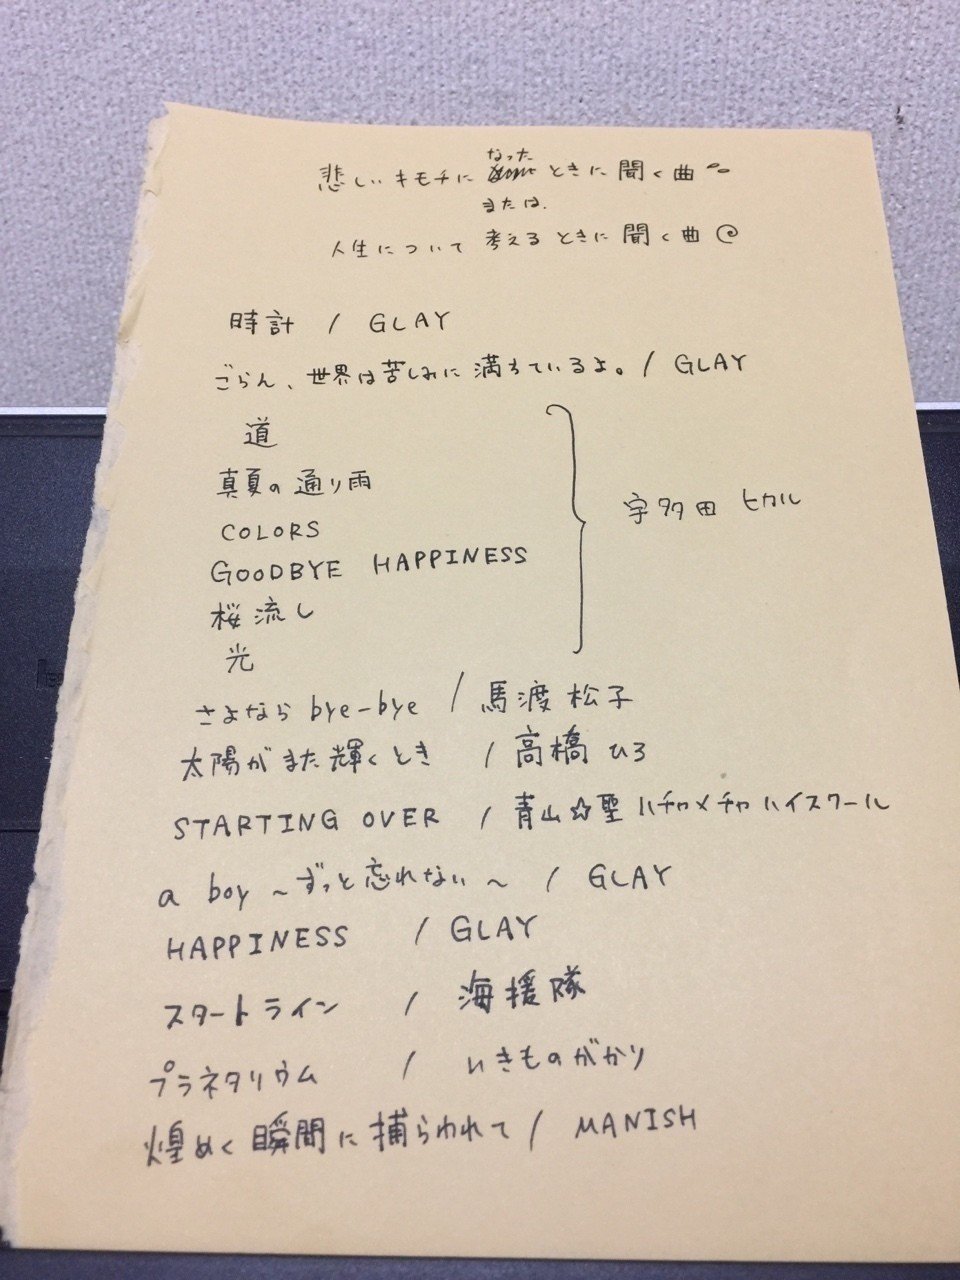 悲しいキモチになったときに聞く曲
または.
人生について考えるときに聞く曲
時計 / GLAY
ごらん、世界は苦しみに満ちているよ。/ GLAY
道
真夏の通り雨
COLORS
GOODBYE HAPPINESS
桜流し
光
宇多田ヒカル
さよなら bye-bye / 馬渡松子
太陽がまた輝くとき / 高橋ひろ
STARTING OVER / 青山☆聖ハチャメチャハイスクール
a boy ～ずっと忘れない～ / GLAY
HAPPINESS / GLAY
スタートライン / 海援隊
プラネタリウム / いきものがかり
煌めく瞬間に捕らわれて / MANISH